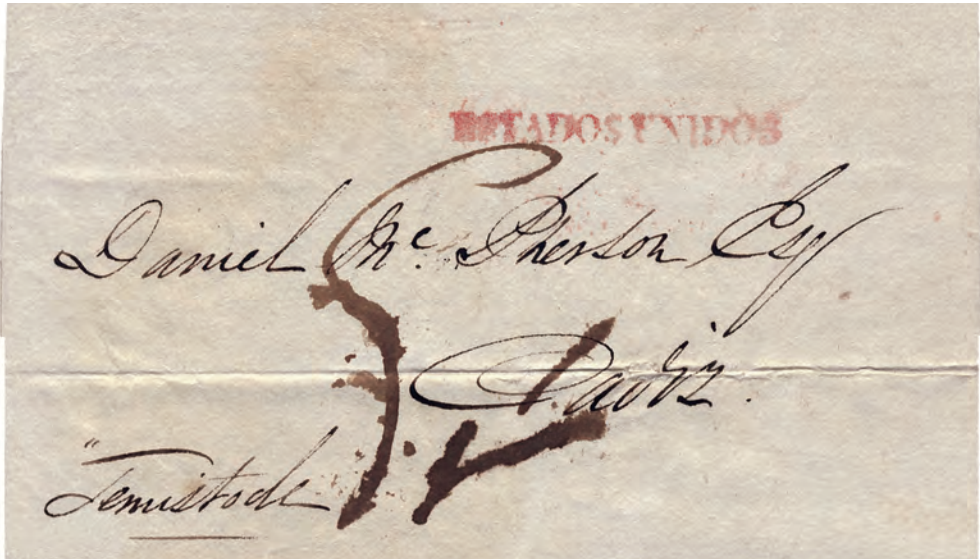 ESTADOS UNIDOS
Daniel Mc. Pherson Esq
Cadiz.
"Temistocle